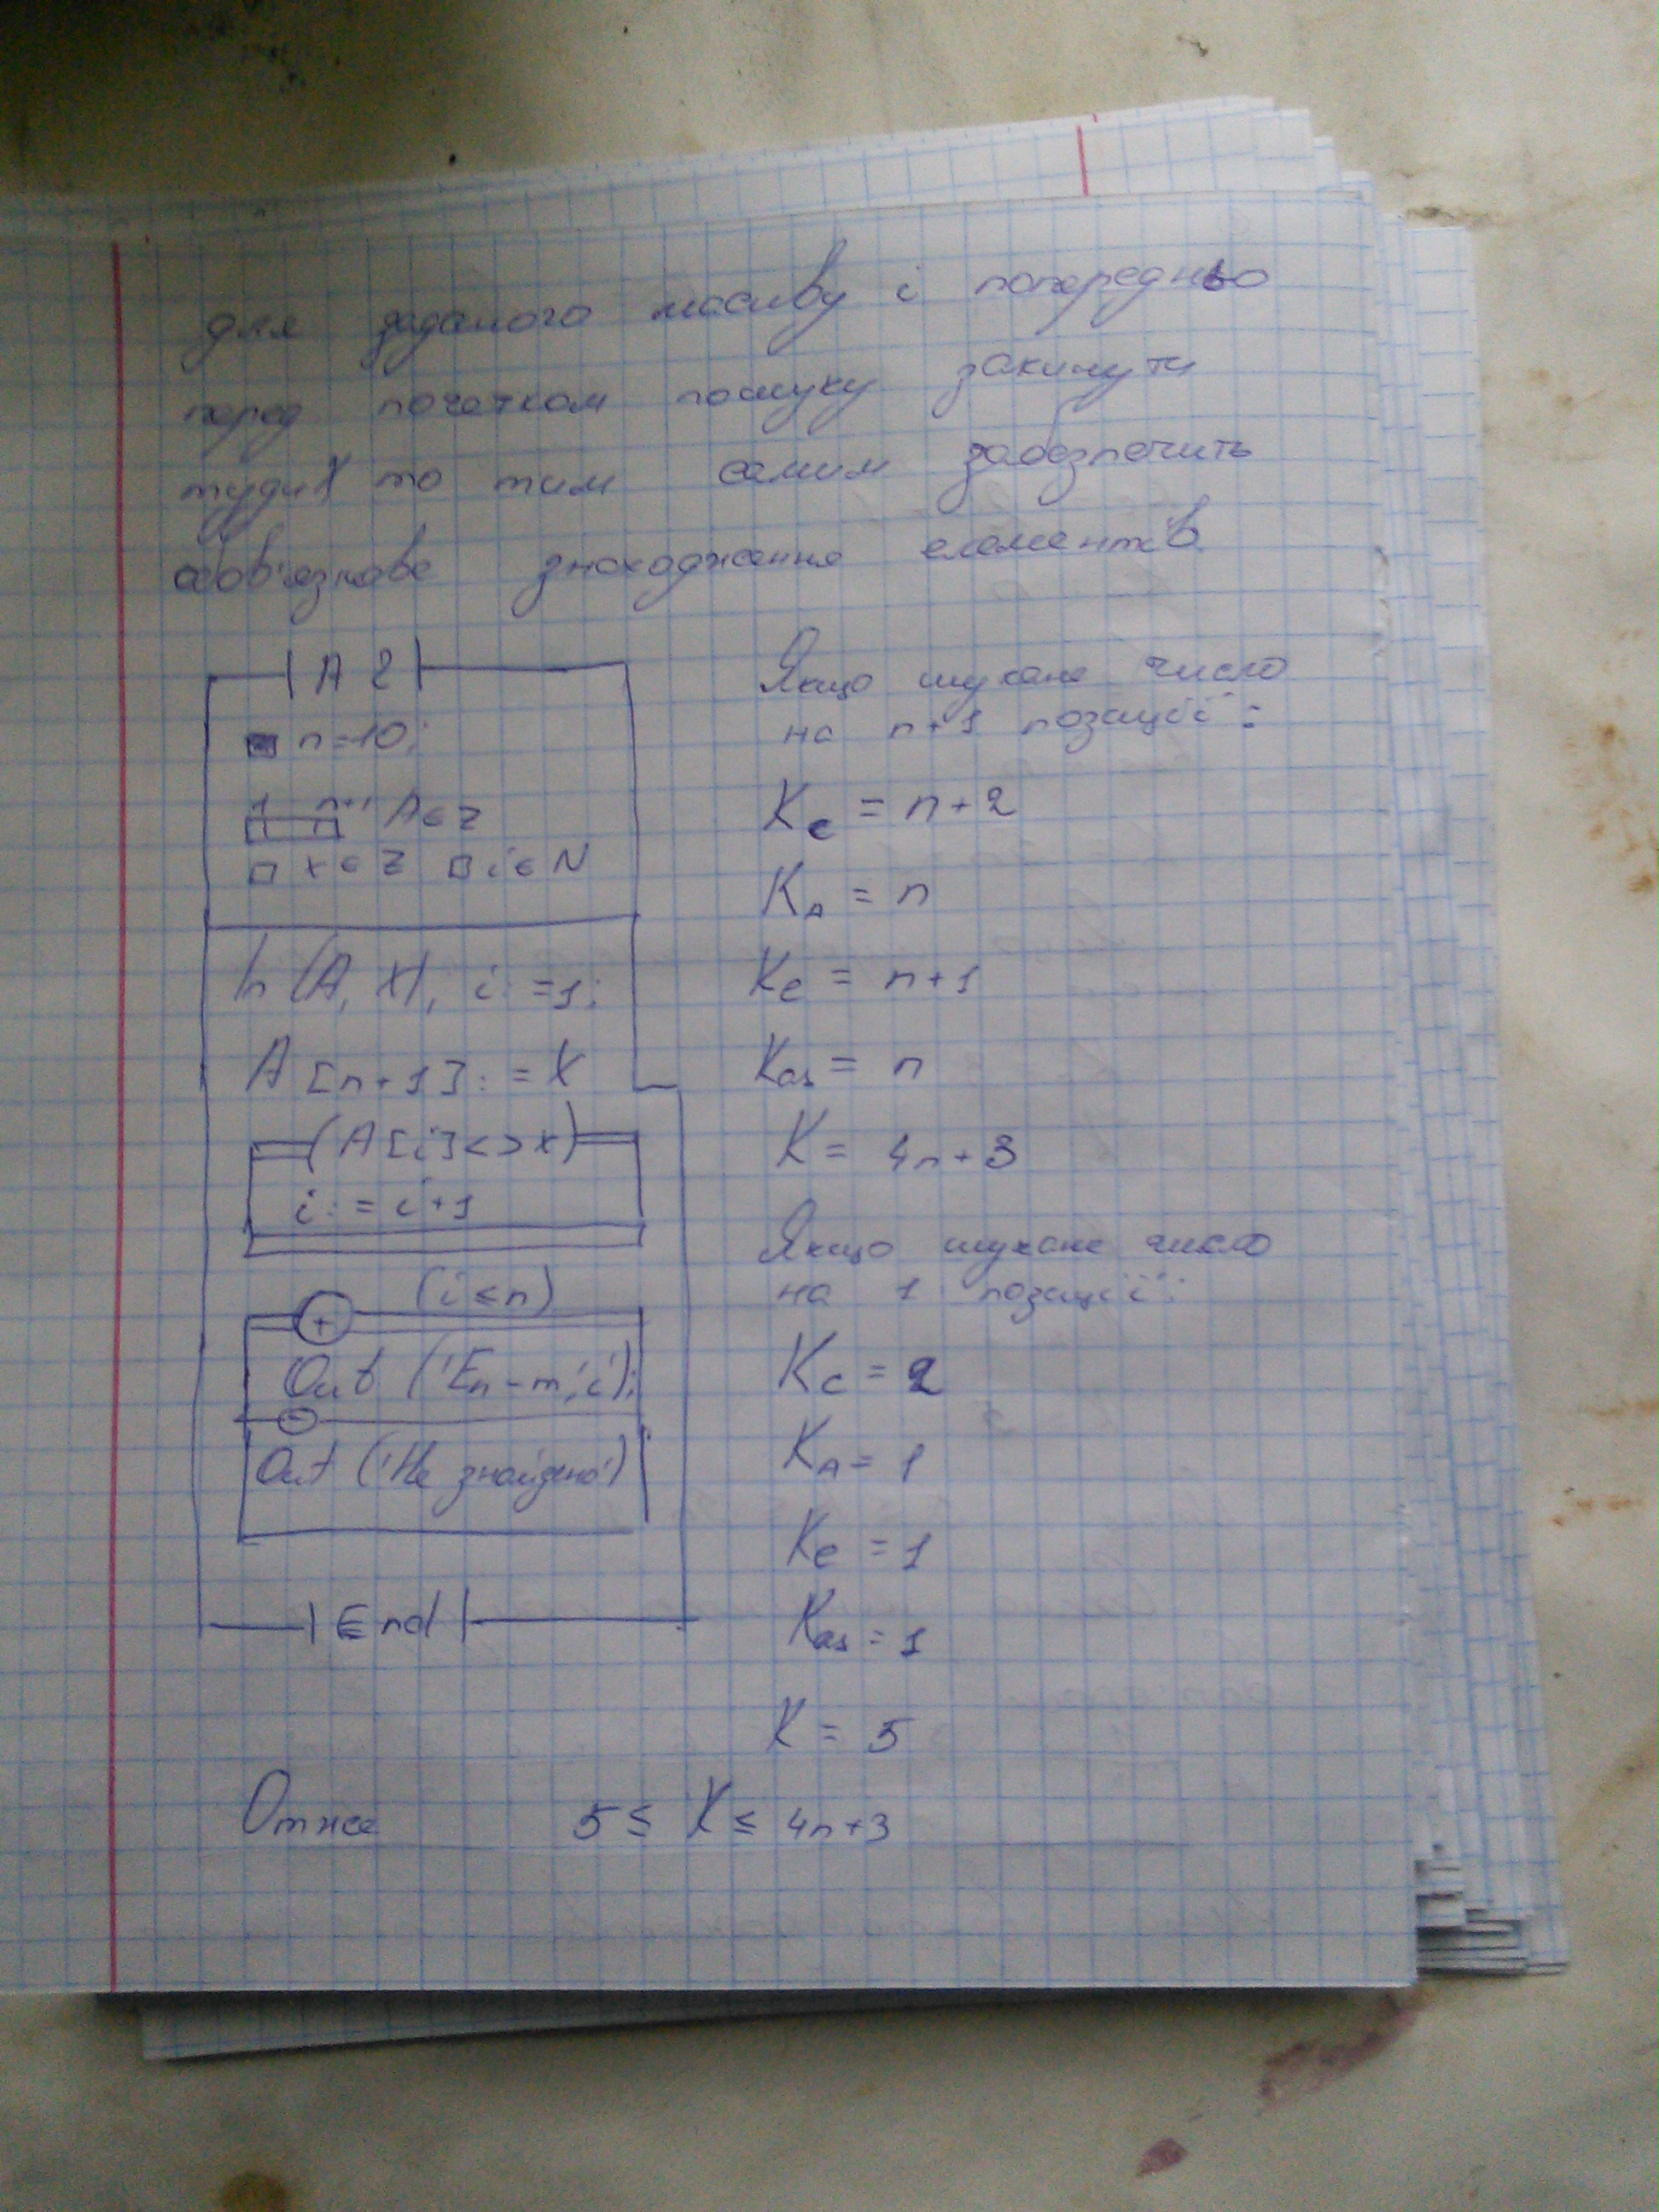 для заданого масиву і попередньо
перед початком пошуку закинути
туди X то тим самим забезпечить
обов'язкове знаходження елементів
A 2
n=10;
1 n+1 A∈Z
x∈Z i∈N
In (A, X), i:=1;
A[n+1]:=X
(A[i]<>x)
i:=i+1
+ (i≤n)
Out ('En-m',i);
-
Out ('Не знайдено')
End
Якщо шукане число
на n+1 позації:
Kc = n+2
KA = n
Ke = n+1
Kas = n
K = 4n+3
Якщо шукане число
на 1 позації:
Kc = 2
KA = 1
Ke = 1
Kas = 1
K = 5
Отже 5 ≤ K ≤ 4n+3